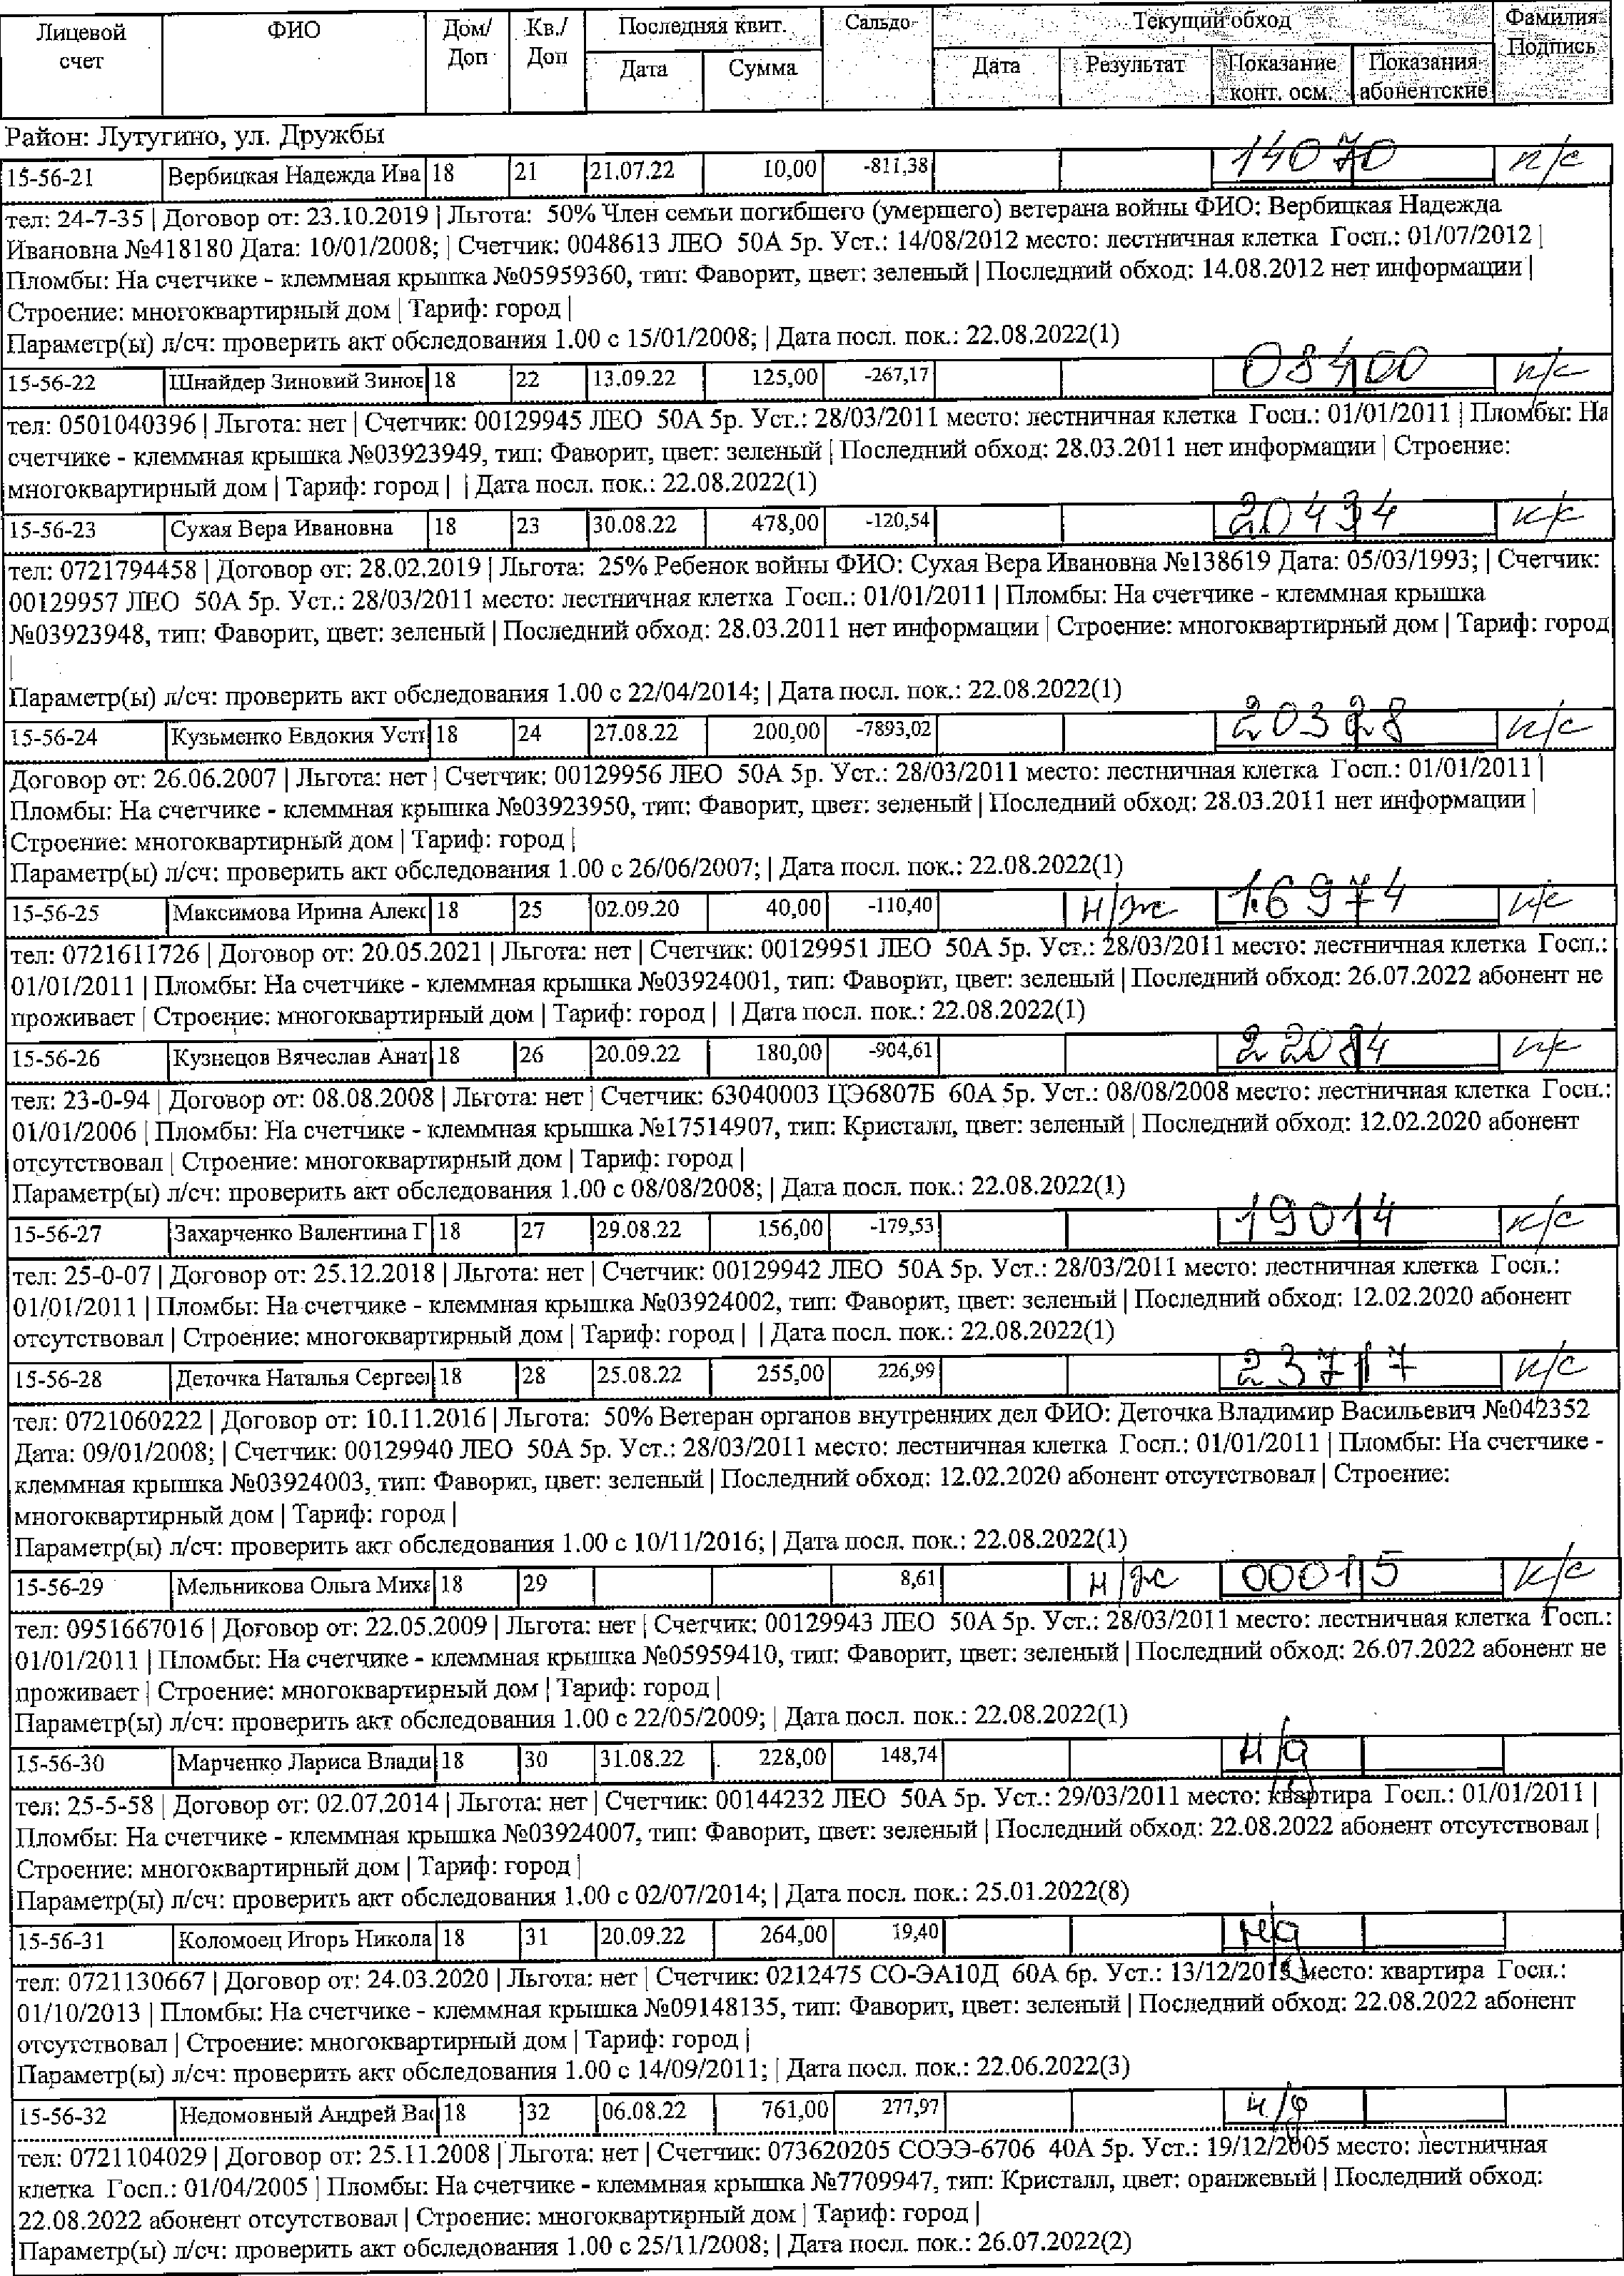 Лицевой счет ФИО Дом/Доп Кв./Доп Последняя квит. Сальдо Текущий обход Фамилия Подпись
Дата Сумма Дата Результат Показание конт. осм. Показания абонентские
Район: Лутугино, ул. Дружбы
15-56-21 Вербицкая Надежда Ива 18 21 21.07.22 10,00 -811,38 14070 к/с
тел: 24-7-35 | Договор от: 23.10.2019 | Льгота: 50% Член семьи погибшего (умершего) ветерана войны ФИО: Вербицкая Надежда
Ивановна №418180 Дата: 10/01/2008; | Счетчик: 0048613 ЛЕО 50А 5р. Уст.: 14/08/2012 место: лестничная клетка Госп.: 01/07/2012 |
Пломбы: На счетчике - клеммная крышка №05959360, тип: Фаворит, цвет: зеленый | Последний обход: 14.08.2012 нет информации |
Строение: многоквартирный дом | Тариф: город |
Параметр(ы) л/сч: проверить акт обследования 1.00 с 15/01/2008; | Дата посл. пок.: 22.08.2022(1)
15-56-22 Шнайдер Зиновий Зинов 18 22 13.09.22 125,00 -267,17 08400 к/с
тел: 0501040396 | Льгота: нет | Счетчик: 00129945 ЛЕО 50А 5р. Уст.: 28/03/2011 место: лестничная клетка Госп.: 01/01/2011 | Пломбы: На
счетчике - клеммная крышка №03923949, тип: Фаворит, цвет: зеленый | Последний обход: 28.03.2011 нет информации | Строение:
многоквартирный дом | Тариф: город | | Дата посл. пок.: 22.08.2022(1)
15-56-23 Сухая Вера Ивановна 18 23 30.08.22 478,00 -120,54 20434 к/с
тел: 0721794458 | Договор от: 28.02.2019 | Льгота: 25% Ребенок войны ФИО: Сухая Вера Ивановна №138619 Дата: 05/03/1993; | Счетчик:
00129957 ЛЕО 50А 5р. Уст.: 28/03/2011 место: лестничная клетка Госп.: 01/01/2011 | Пломбы: На счетчике - клеммная крышка
№03923948, тип: Фаворит, цвет: зеленый | Последний обход: 28.03.2011 нет информации | Строение: многоквартирный дом | Тариф: город
|
Параметр(ы) л/сч: проверить акт обследования 1.00 с 22/04/2014; | Дата посл. пок.: 22.08.2022(1)
15-56-24 Кузьменко Евдокия Усти 18 24 27.08.22 200,00 -7893,02 20328 к/с
Договор от: 26.06.2007 | Льгота: нет | Счетчик: 00129956 ЛЕО 50А 5р. Уст.: 28/03/2011 место: лестничная клетка Госп.: 01/01/2011 |
Пломбы: На счетчике - клеммная крышка №03923950, тип: Фаворит, цвет: зеленый | Последний обход: 28.03.2011 нет информации |
Строение: многоквартирный дом | Тариф: город |
Параметр(ы) л/сч: проверить акт обследования 1.00 с 26/06/2007; | Дата посл. пок.: 22.08.2022(1)
15-56-25 Максимова Ирина Алекс 18 25 02.09.20 40,00 -110,40 н/ж 16974 к/с
тел: 0721611726 | Договор от: 20.05.2021 | Льгота: нет | Счетчик: 00129951 ЛЕО 50А 5р. Уст.: 28/03/2011 место: лестничная клетка Госп.:
01/01/2011 | Пломбы: На счетчике - клеммная крышка №03924001, тип: Фаворит, цвет: зеленый | Последний обход: 26.07.2022 абонент не
проживает | Строение: многоквартирный дом | Тариф: город | | Дата посл. пок.: 22.08.2022(1)
15-56-26 Кузнецов Вячеслав Анат 18 26 20.09.22 180,00 -904,61 22084 к/с
тел: 23-0-94 | Договор от: 08.08.2008 | Льгота: нет | Счетчик: 63040003 ЦЭ6807Б 60А 5р. Уст.: 08/08/2008 место: лестничная клетка Госп.:
01/01/2006 | Пломбы: На счетчике - клеммная крышка №17514907, тип: Кристалл, цвет: зеленый | Последний обход: 12.02.2020 абонент
отсутствовал | Строение: многоквартирный дом | Тариф: город |
Параметр(ы) л/сч: проверить акт обследования 1.00 с 08/08/2008; | Дата посл. пок.: 22.08.2022(1)
15-56-27 Захарченко Валентина Г 18 27 29.08.22 156,00 -179,53 19014 к/с
тел: 25-0-07 | Договор от: 25.12.2018 | Льгота: нет | Счетчик: 00129942 ЛЕО 50А 5р. Уст.: 28/03/2011 место: лестничная клетка Госп.:
01/01/2011 | Пломбы: На счетчике - клеммная крышка №03924002, тип: Фаворит, цвет: зеленый | Последний обход: 12.02.2020 абонент
отсутствовал | Строение: многоквартирный дом | Тариф: город | | Дата посл. пок.: 22.08.2022(1)
15-56-28 Деточка Наталья Сергее 18 28 25.08.22 255,00 226,99 23717 к/с
тел: 0721060222 | Договор от: 10.11.2016 | Льгота: 50% Ветеран органов внутренних дел ФИО: Деточка Владимир Васильевич №042352
Дата: 09/01/2008; | Счетчик: 00129940 ЛЕО 50А 5р. Уст.: 28/03/2011 место: лестничная клетка Госп.: 01/01/2011 | Пломбы: На счетчике -
клеммная крышка №03924003, тип: Фаворит, цвет: зеленый | Последний обход: 12.02.2020 абонент отсутствовал | Строение:
многоквартирный дом | Тариф: город |
Параметр(ы) л/сч: проверить акт обследования 1.00 с 10/11/2016; | Дата посл. пок.: 22.08.2022(1)
15-56-29 Мельникова Ольга Миха 18 29 8,61 н/ж 00015 к/с
тел: 0951667016 | Договор от: 22.05.2009 | Льгота: нет | Счетчик: 00129943 ЛЕО 50А 5р. Уст.: 28/03/2011 место: лестничная клетка Госп.:
01/01/2011 | Пломбы: На счетчике - клеммная крышка №05959410, тип: Фаворит, цвет: зеленый | Последний обход: 26.07.2022 абонент не
проживает | Строение: многоквартирный дом | Тариф: город |
Параметр(ы) л/сч: проверить акт обследования 1.00 с 22/05/2009; | Дата посл. пок.: 22.08.2022(1)
15-56-30 Марченко Лариса Влади 18 30 31.08.22 228,00 148,74 н/д
тел: 25-5-58 | Договор от: 02.07.2014 | Льгота: нет | Счетчик: 00144232 ЛЕО 50А 5р. Уст.: 29/03/2011 место: квартира Госп.: 01/01/2011 |
Пломбы: На счетчике - клеммная крышка №03924007, тип: Фаворит, цвет: зеленый | Последний обход: 22.08.2022 абонент отсутствовал |
Строение: многоквартирный дом | Тариф: город |
Параметр(ы) л/сч: проверить акт обследования 1.00 с 02/07/2014; | Дата посл. пок.: 25.01.2022(8)
15-56-31 Коломоец Игорь Никола 18 31 20.09.22 264,00 19,40 н/д
тел: 0721130667 | Договор от: 24.03.2020 | Льгота: нет | Счетчик: 0212475 СО-ЭА10Д 60А 6р. Уст.: 13/12/2013 место: квартира Госп.:
01/10/2013 | Пломбы: На счетчике - клеммная крышка №09148135, тип: Фаворит, цвет: зеленый | Последний обход: 22.08.2022 абонент
отсутствовал | Строение: многоквартирный дом | Тариф: город |
Параметр(ы) л/сч: проверить акт обследования 1.00 с 14/09/2011; | Дата посл. пок.: 22.06.2022(3)
15-56-32 Недомовный Андрей Вас 18 32 06.08.22 761,00 277,97 н/д
тел: 0721104029 | Договор от: 25.11.2008 | Льгота: нет | Счетчик: 073620205 СОЭЭ-6706 40А 5р. Уст.: 19/12/2005 место: лестничная
клетка Госп.: 01/04/2005 | Пломбы: На счетчике - клеммная крышка №7709947, тип: Кристалл, цвет: оранжевый | Последний обход:
22.08.2022 абонент отсутствовал | Строение: многоквартирный дом | Тариф: город |
Параметр(ы) л/сч: проверить акт обследования 1.00 с 25/11/2008; | Дата посл. пок.: 26.07.2022(2)